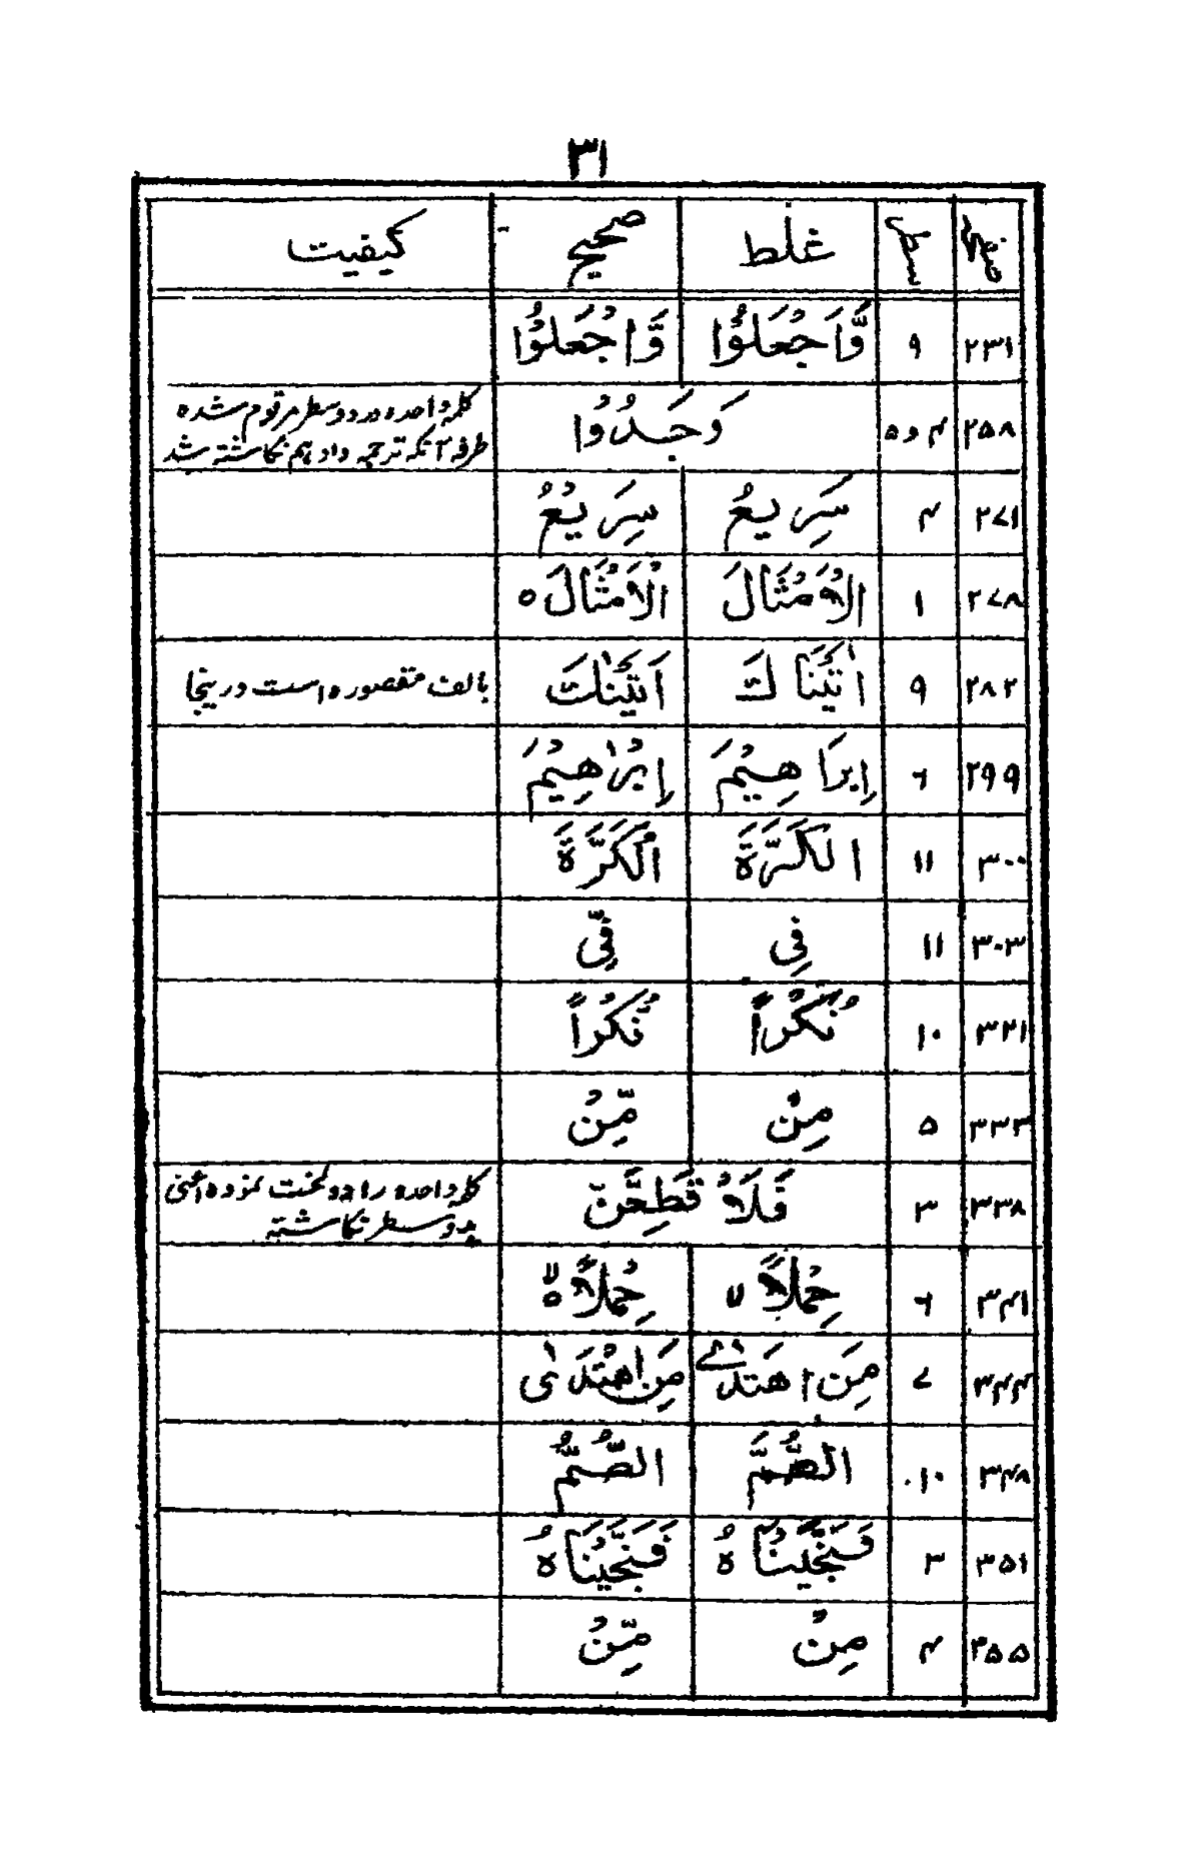 ۳۱
صفحہ سطر غلط صحیح کیفیت
۲۳۱ ۹ وَّاَجْعَلُوْا وَّاجْعَلُوْا
۲۵۸ ۴ و ۵ وَجَدُوْا کلمہ واحدہ در دو سطر مرقوم شدہ
طرفہ آنکہ ترجمہ دادیم نگاشتہ شد
۲۷۱ ۴ سَرِیعُ سَرِیْعُ
۲۷۸ ۱ الْاَمْثَالَ الْاَمْثَالَ ہ
۲۸۲ ۹ اٰتَیْنَاكَ اٰتَیْنٰكَ بالف مقصورہ است درینجا
۲۹۹ ۶ اِبرَاهِیْمَ اِبْرٰهِیْمَ
۳۰۰ ۱۱ الکَرَّةَ الْکَرَّةَ
۳۰۳ ۱۱ فِی فِّی
۳۲۱ ۱۰ نُّكْراً نُّكْراً
۳۳۳ ۵ مِنْ مِّنْ
۳۳۸ ۳ فَلَاُ قَطِعَنَّ کلمہ واحدہ را دو لخت نمودہ اعنی
بدو سطر نگاشتہ
۳۴۱ ۶ حِمْلاً لا حِمْلاً ہ لا
۳۴۴ ۷ مَنِ اهتَدٰے مَنِ اهْتَدٰی
۳۴۸ ۱۰ الصُّمَّ الصُّمُّ
۳۵۱ ۳ فَنَجَّیْنَاهُ فَنَجَّیْنَاهُ
۳۵۵ ۴ مِنْ مِّنْ